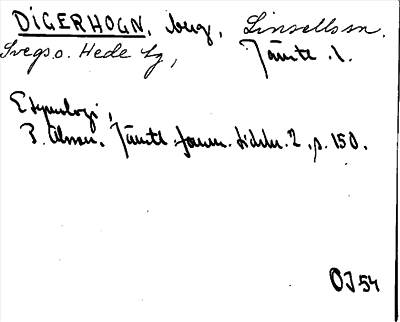 DIGERHOGN, berg, Linsells sn.
Svegs o. Hede tg, Jämtl. l.
Etymologi,
P. Olsson, Jämtl. forn. tidskr. 2, s. 150.
OJ 54